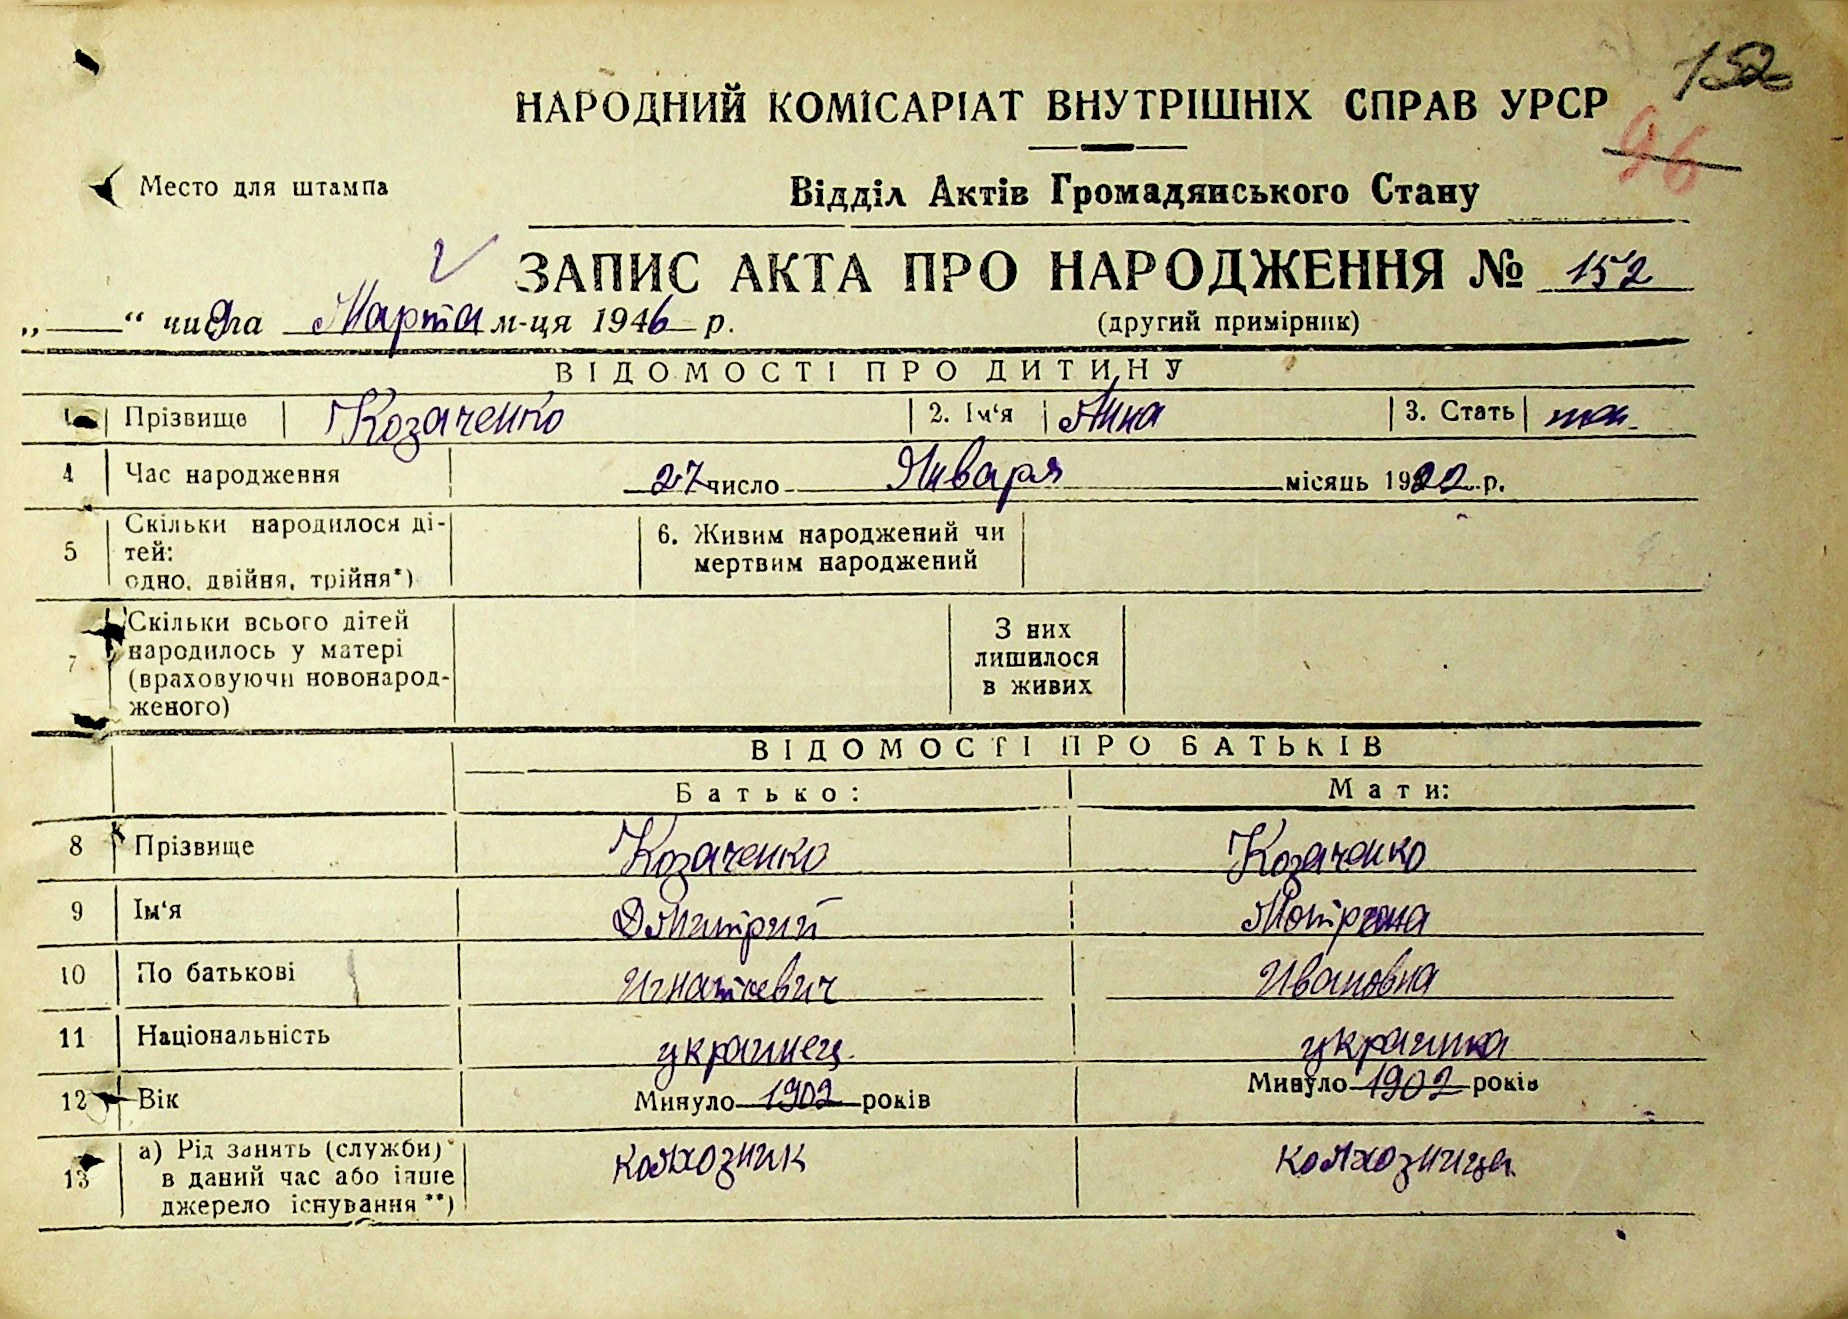 152
НАРОДНИЙ КОМІСАРІАТ ВНУТРІШНІХ СПРАВ УРСР
96
Место для штампа
Відділ Актів Громадянського Стану
ЗАПИС АКТА ПРО НАРОДЖЕННЯ № 152
„ “ числа 9 Марта м-ця 1946 р. (другий примірник)
ВІДОМОСТІ ПРО ДИТИНУ
1 Прізвище Козаченко 2. Ім‘я Нина 3. Стать жен.
4 Час народження 27 число Января місяць 1922 р.
5 Скільки народилося ді-
тей:
одно, двійня, трійня*)
6. Живим народжений чи
мертвим народжений
7 Скільки всього дітей
народилось у матері
(враховуючи новонарод-
женого)
З них
лишилося
в живих
ВІДОМОСТІ ПРО БАТЬКІВ
Батько: Мати:
8 Прізвище Козаченко Козаченко
9 Ім‘я Дмитрий Мотрона
10 По батькові Игнатьевич Ивановна
11 Національність украинец украинка
12 Вік Минуло 1902 років Минуло 1902 років
13 а) Рід занять (служби)
в даний час або інше
джерело існування **)
колхозник колхозница